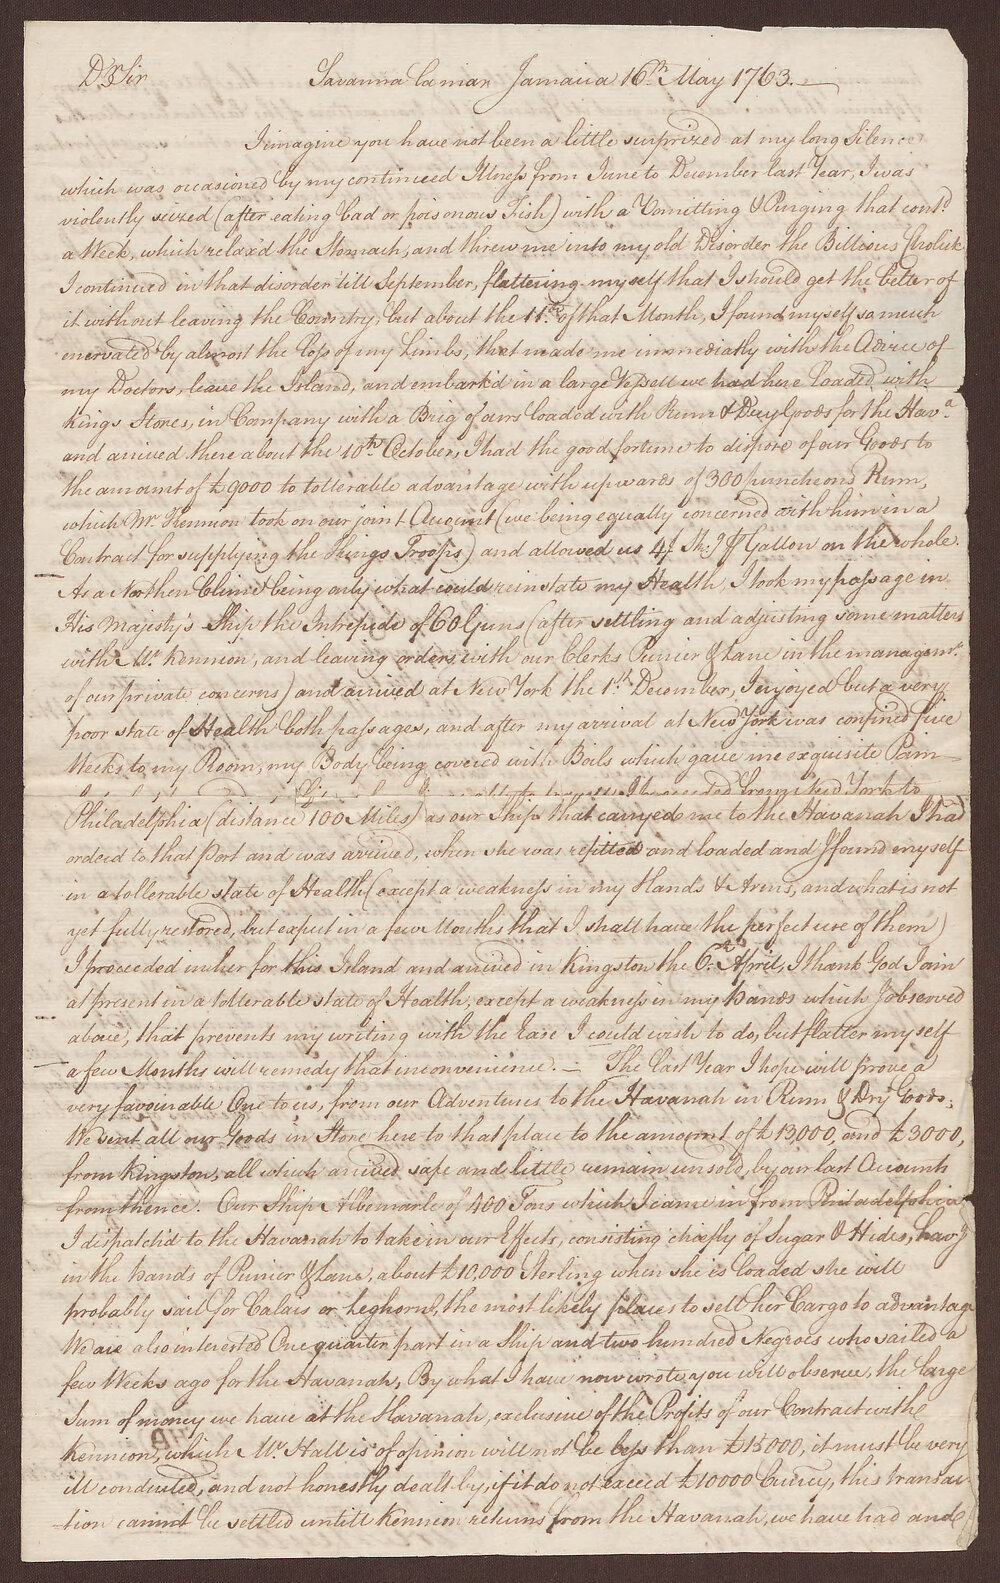 Dr Sir Savanna la mar Jamaica 16th May 1763.
I imagine you have not been a little surprized at my long Silence
which was occasioned by my continued Illness from June to December last Year, I was
violently seized (after eating bad or poisonous Fish) with a Vomitting & Purging that contd
a Week, which relax'd the Stomach, and threw me into my old Disorder the Billious Cholick
I continued in that disorder till September, flattering myself that I should get the better of
it without leaving the Country, but about the 11th of that Month, I found myself so much
enervated by almost the loss of my Limbs, that made me immediatly with the Advice of
my Doctors, leave the Island, and embark'd in a large Vessell we had here loaded with
Kings Stores, in Company with a Brig of ours loaded with Rum & Dry Goods for the Hava
and arrived there about the 10th October, I had the good fortune to dispose of our Goods to
the amount of £9000 to tollerable advantage with upwards of 300 puncheons Rum,
which Mr Kennion took on our joint Account (we being equally concerned with him in a
Contract for supplying the Kings Troops) and allowed us 4/ Gallon on the whole.
As a Northen Clime being only what could reinstate my Health, I took my passage in
His Majesty's Ship the Intrepide of 60 Guns (after settling and adjusting some matters
with Mr Kennion, and leaving orders with our Clerks Punier & Lane in the managemt
of our private concerns) and arrived at New York the 1st December, I enjoyed but a very
poor state of Health both passages, and after my arrival at New York was confined five
Weeks to my Room, my Body being covered with Boils which gave me exquisite Pain
I proceeded from New York to
Philadelphia (distance 100 Miles) as our Ship that carryed me to the Havanah I had
orderd to that Port and was arrived, when she was refitted and loaded and I found myself
in a tollerable state of Health (except a weakness in my Hands & Arms, and what is not
yet fully restored, but expect in a few Months that I shall have the perfect use of them)
I proceeded in her for this Island and arrived in Kingston the 6th April, I thank God I am
at present in a tollerable state of Health, except a weakness in my hands which I observed
above, that prevents my writing with the Ease I could wish to do, but flatter myself
a few Months will remedy that inconvenience. — The last Year I hope will prove a
very favourable One to us, from our Adventures to the Havanah in Rum & Dry Goods,
We sent all our Goods in Store here to that place to the amount of £13,000, and £3000,
from Kingston, all which arrived safe and little remain unsold, by our last Accounts
from thence. Our Ship Albemarle of 400 Tons which I came in from Philadelphia
I dispatch'd to the Havanah to take in our Effects, consisting chiefly of Sugar & Hides, havg
in the hands of Punier & Lane, about £10,000 Sterling when she is loaded she will
probably sail for Calais or Leghorn, the most likely places to sell her Cargo to advantage
We are also interested One quarter part in a Ship and two hundred Negroes who sailed a
few Weeks ago for the Havanah, By what I have now wrote you will observe, the large
Sum of money we have at the Havanah, exclusive of the Profits of our Contract with
Kennion, which Mr Hall is of opinion will not be less than £15000, it must be very
ill conducted, and not honestly dealt by, if it do not exceed £10000 Currcy, this transac-
-tion cannot be settled untill Kennion returns from the Havanah, we have had and